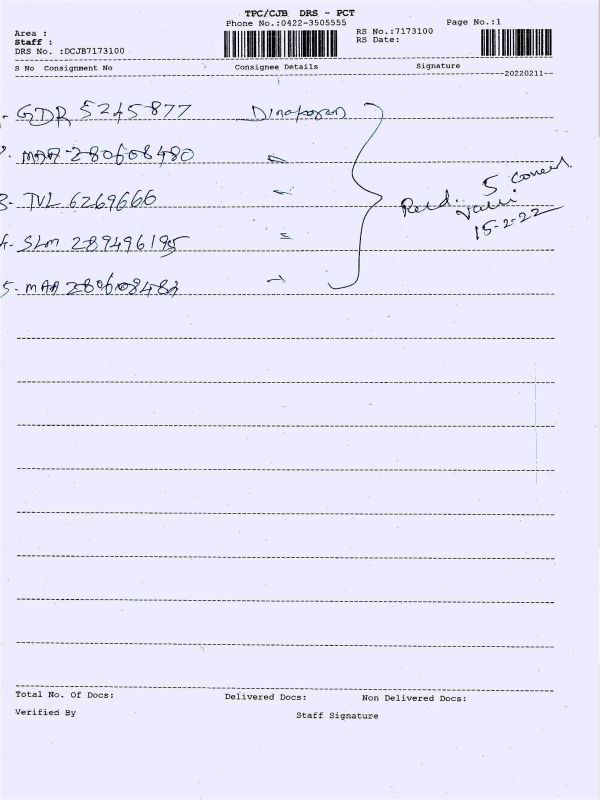 TPC/CJB DRS - PCT
Phone No.:0422-3505555
Page No.:1
Area :
Staff :
DRS No. :DCJB7173100
RS No.:7173100
RS Date:
S No Consignment No Consignee Details Signature
20220211
GDR 5245877
2. MAA 280608480
3- TVL 6269666
4. SLM 289496195
5- MAA
Recd. 5
15-2-22
Total No. Of Docs: Delivered Docs: Non Delivered Docs:
Verified By Staff Signature